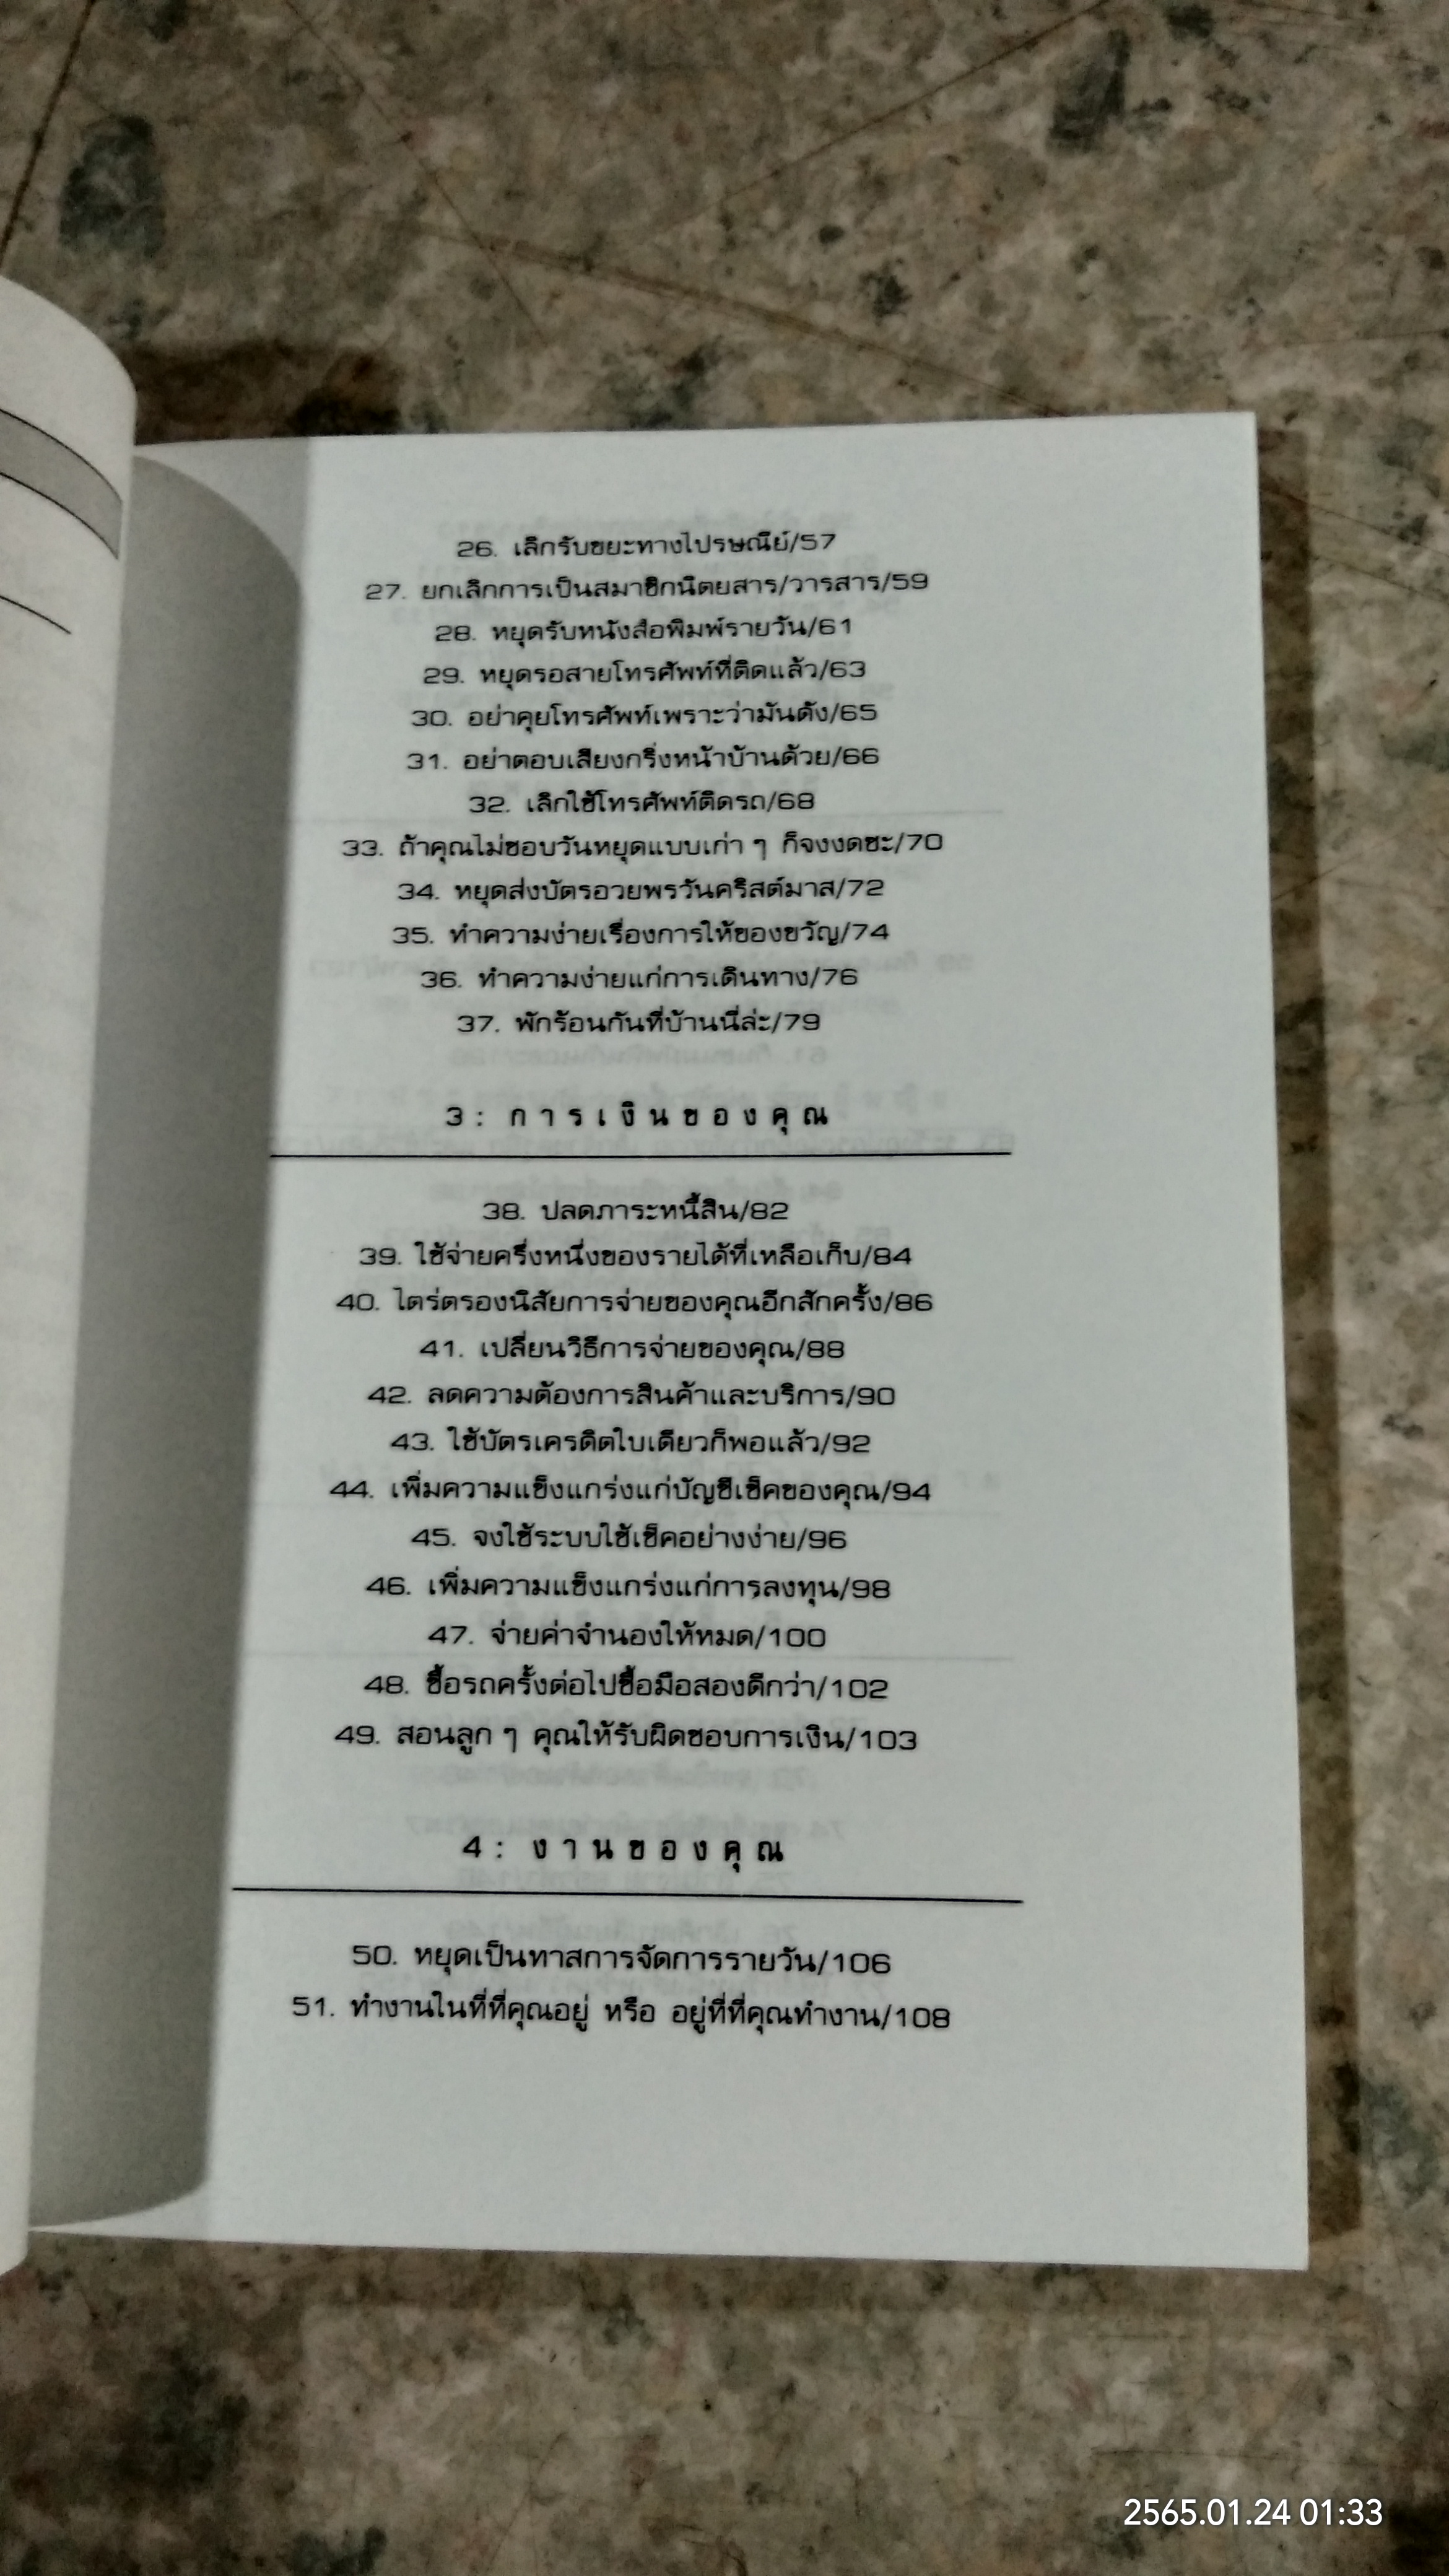 26. เลิกรับขยะทางไปรษณีย์/57
27. ยกเลิกการเป็นสมาชิกนิตยสาร/วารสาร/59
28. หยุดรับหนังสือพิมพ์รายวัน/61
29. หยุดรอสายโทรศัพท์ที่ติดแล้ว/63
30. อย่าคุยโทรศัพท์เพราะว่ามันดัง/65
31. อย่าตอบเสียงกริ่งหน้าบ้านด้วย/66
32. เลิกใช้โทรศัพท์ติดรถ/68
33. ถ้าคุณไม่ชอบวันหยุดแบบเก่า ๆ ก็จงงดซะ/70
34. หยุดส่งบัตรอวยพรวันคริสต์มาส/72
35. ทำความง่ายเรื่องการให้ของขวัญ/74
36. ทำความง่ายแก่การเดินทาง/76
37. พักร้อนกันที่บ้านนี่ล่ะ/79
3: การเงินของคุณ
38. ปลดภาระหนี้สิน/82
39. ใช้จ่ายครึ่งหนึ่งของรายได้ที่เหลือเก็บ/84
40. ไตร่ตรองนิสัยการจ่ายของคุณอีกสักครั้ง/86
41. เปลี่ยนวิธีการจ่ายของคุณ/88
42. ลดความต้องการสินค้าและบริการ/90
43. ใช้บัตรเครดิตใบเดียวก็พอแล้ว/92
44. เพิ่มความแข็งแกร่งแก่บัญชีเช็คของคุณ/94
45. จงใช้ระบบใช้เช็คอย่างง่าย/96
46. เพิ่มความแข็งแกร่งแก่การลงทุน/98
47. จ่ายค่าจำนองให้หมด/100
48. ซื้อรถครั้งต่อไปซื้อมือสองดีกว่า/102
49. สอนลูก ๆ คุณให้รับผิดชอบการเงิน/103
4: งานของคุณ
50. หยุดเป็นทาสการจัดการรายวัน/106
51. ทำงานในที่ที่คุณอยู่ หรือ อยู่ที่ที่คุณทำงาน/108
2565.01.24 01:33